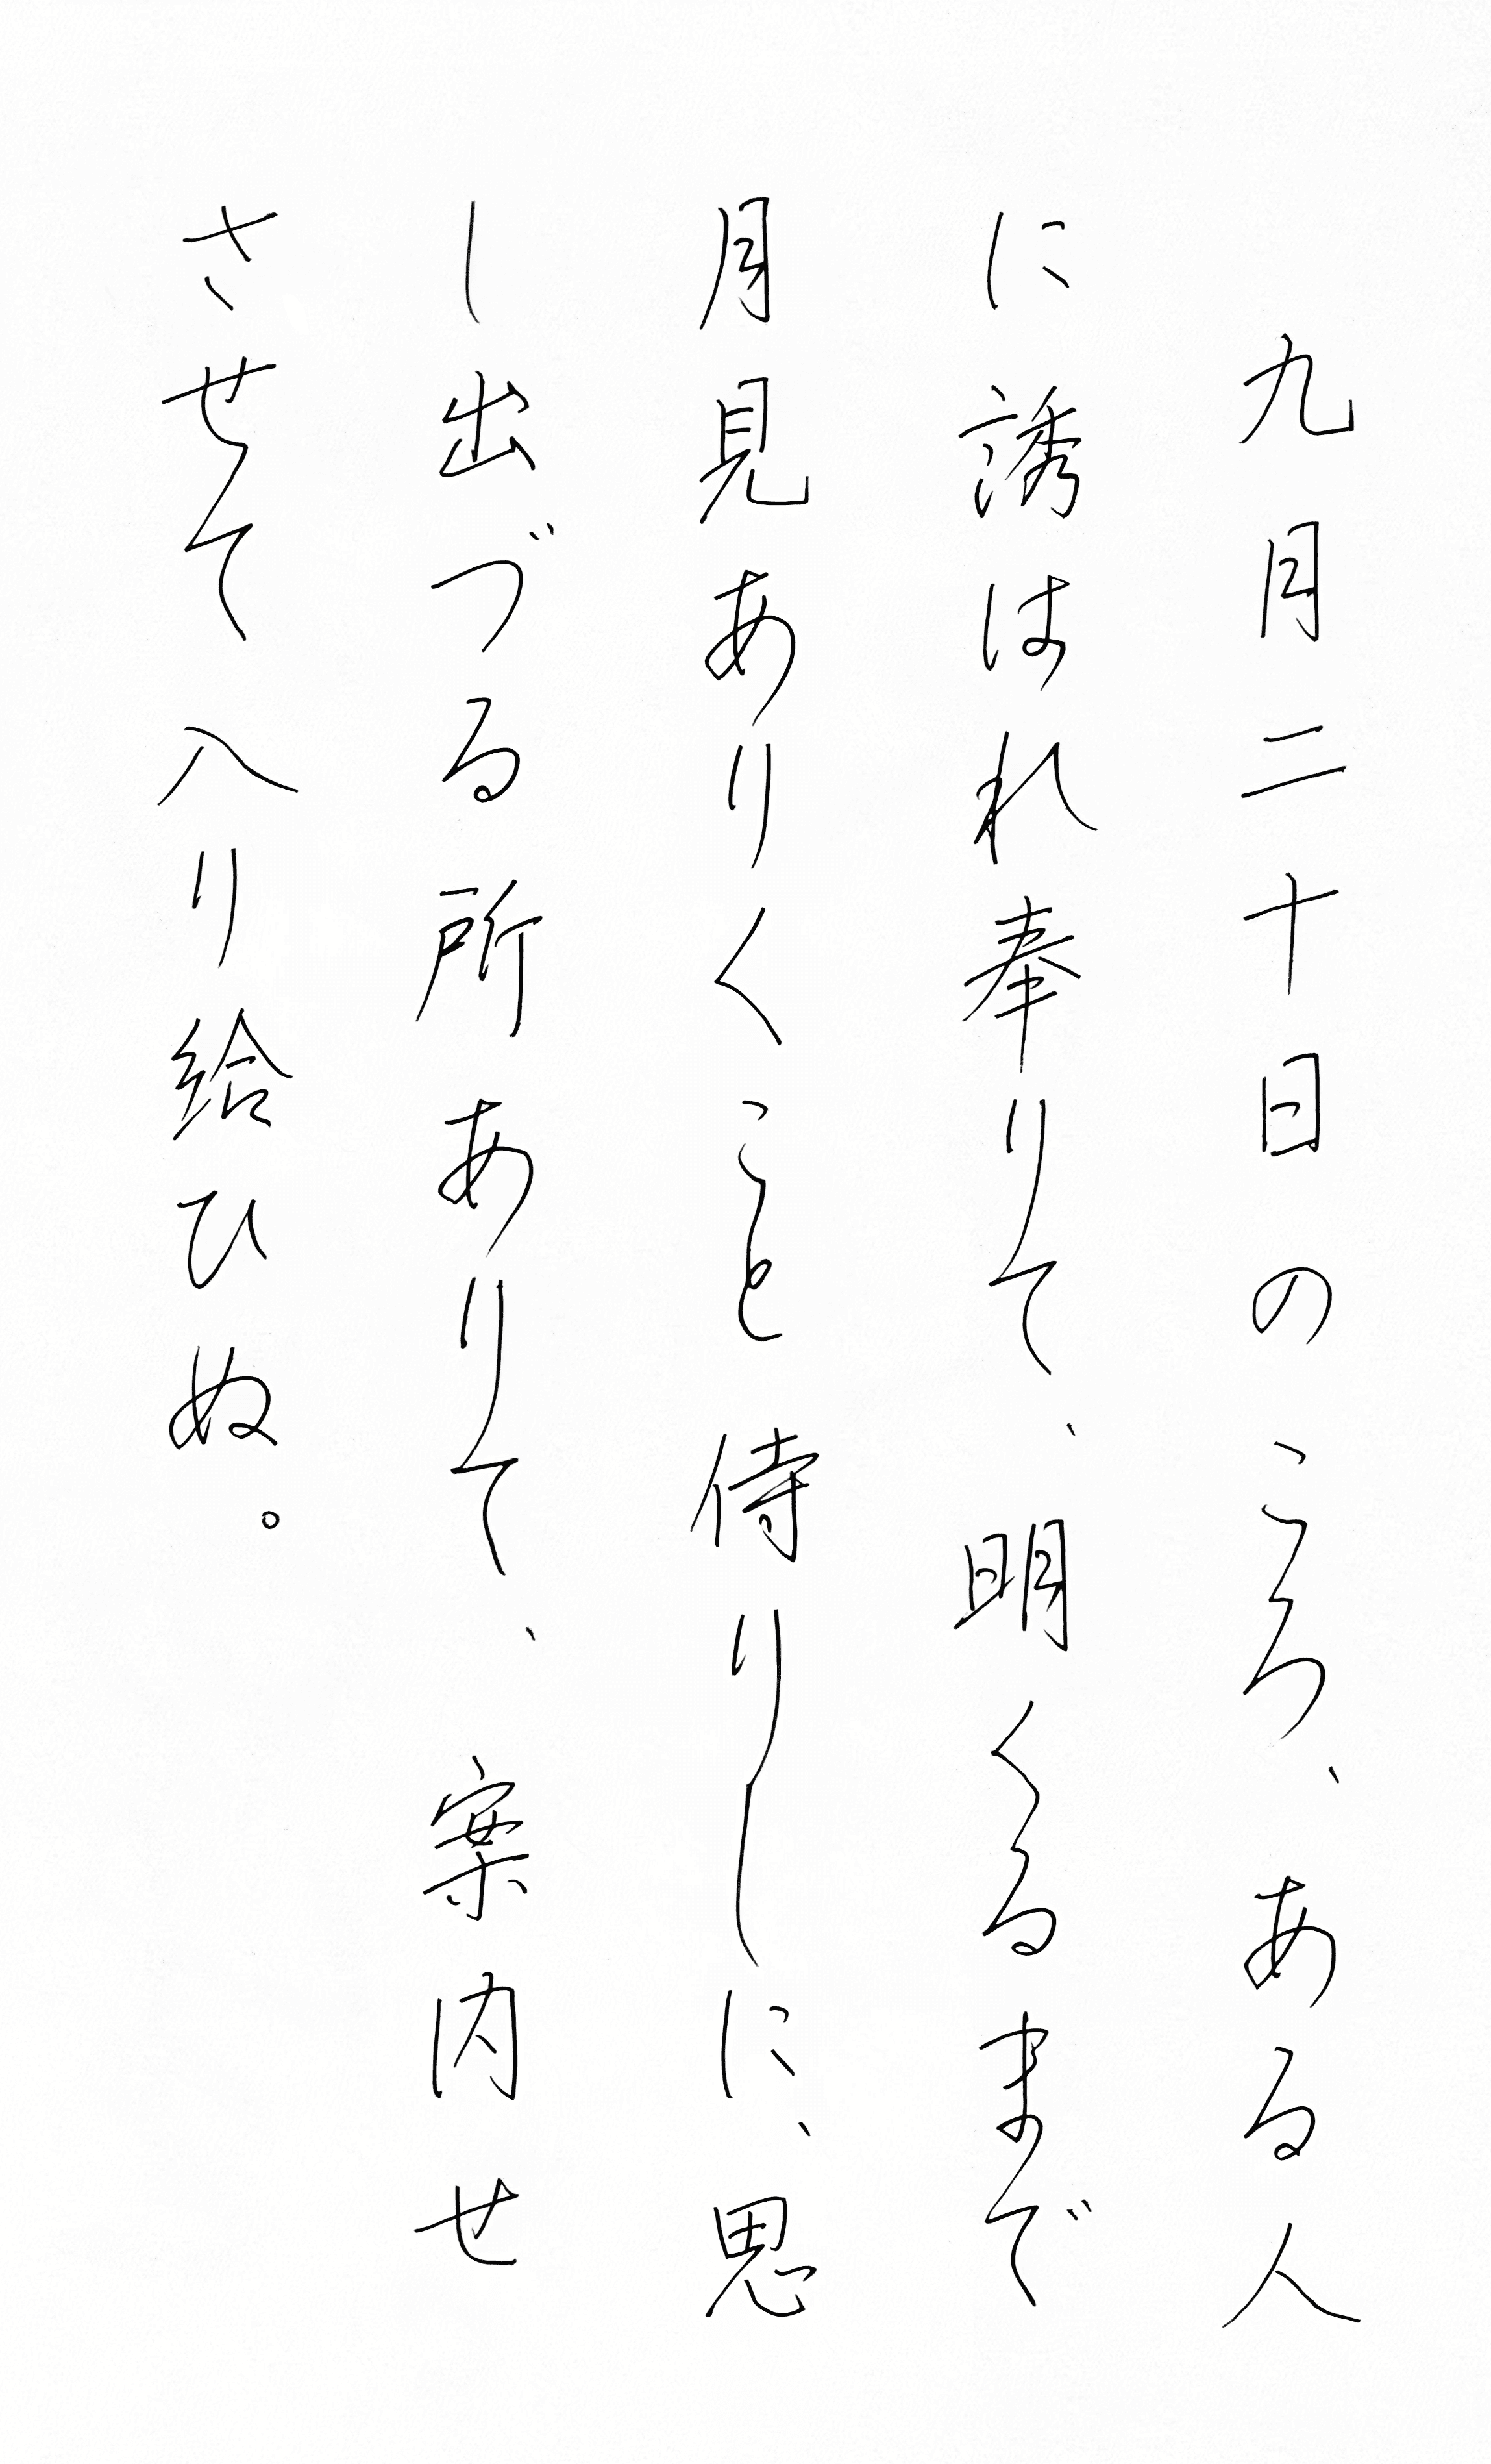 九月二十日のころ、ある人
に誘はれ奉りて、明くるまで
月見ありくこと侍りしに、思
し出づる所ありて、案内せ
させて入り給ひぬ。